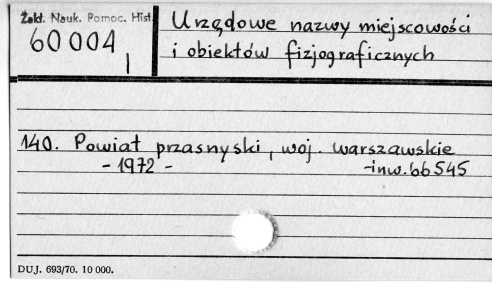 Zakł. Nauk. Pomoc. Hist.
60 004
I
Urzędowe nazwy miejscowości
i obiektów fizjograficznych
140. Powiat przasnyski, woj. warszawskie
- 1972 - -inw.bb545
DUJ. 693/70. 10 000.